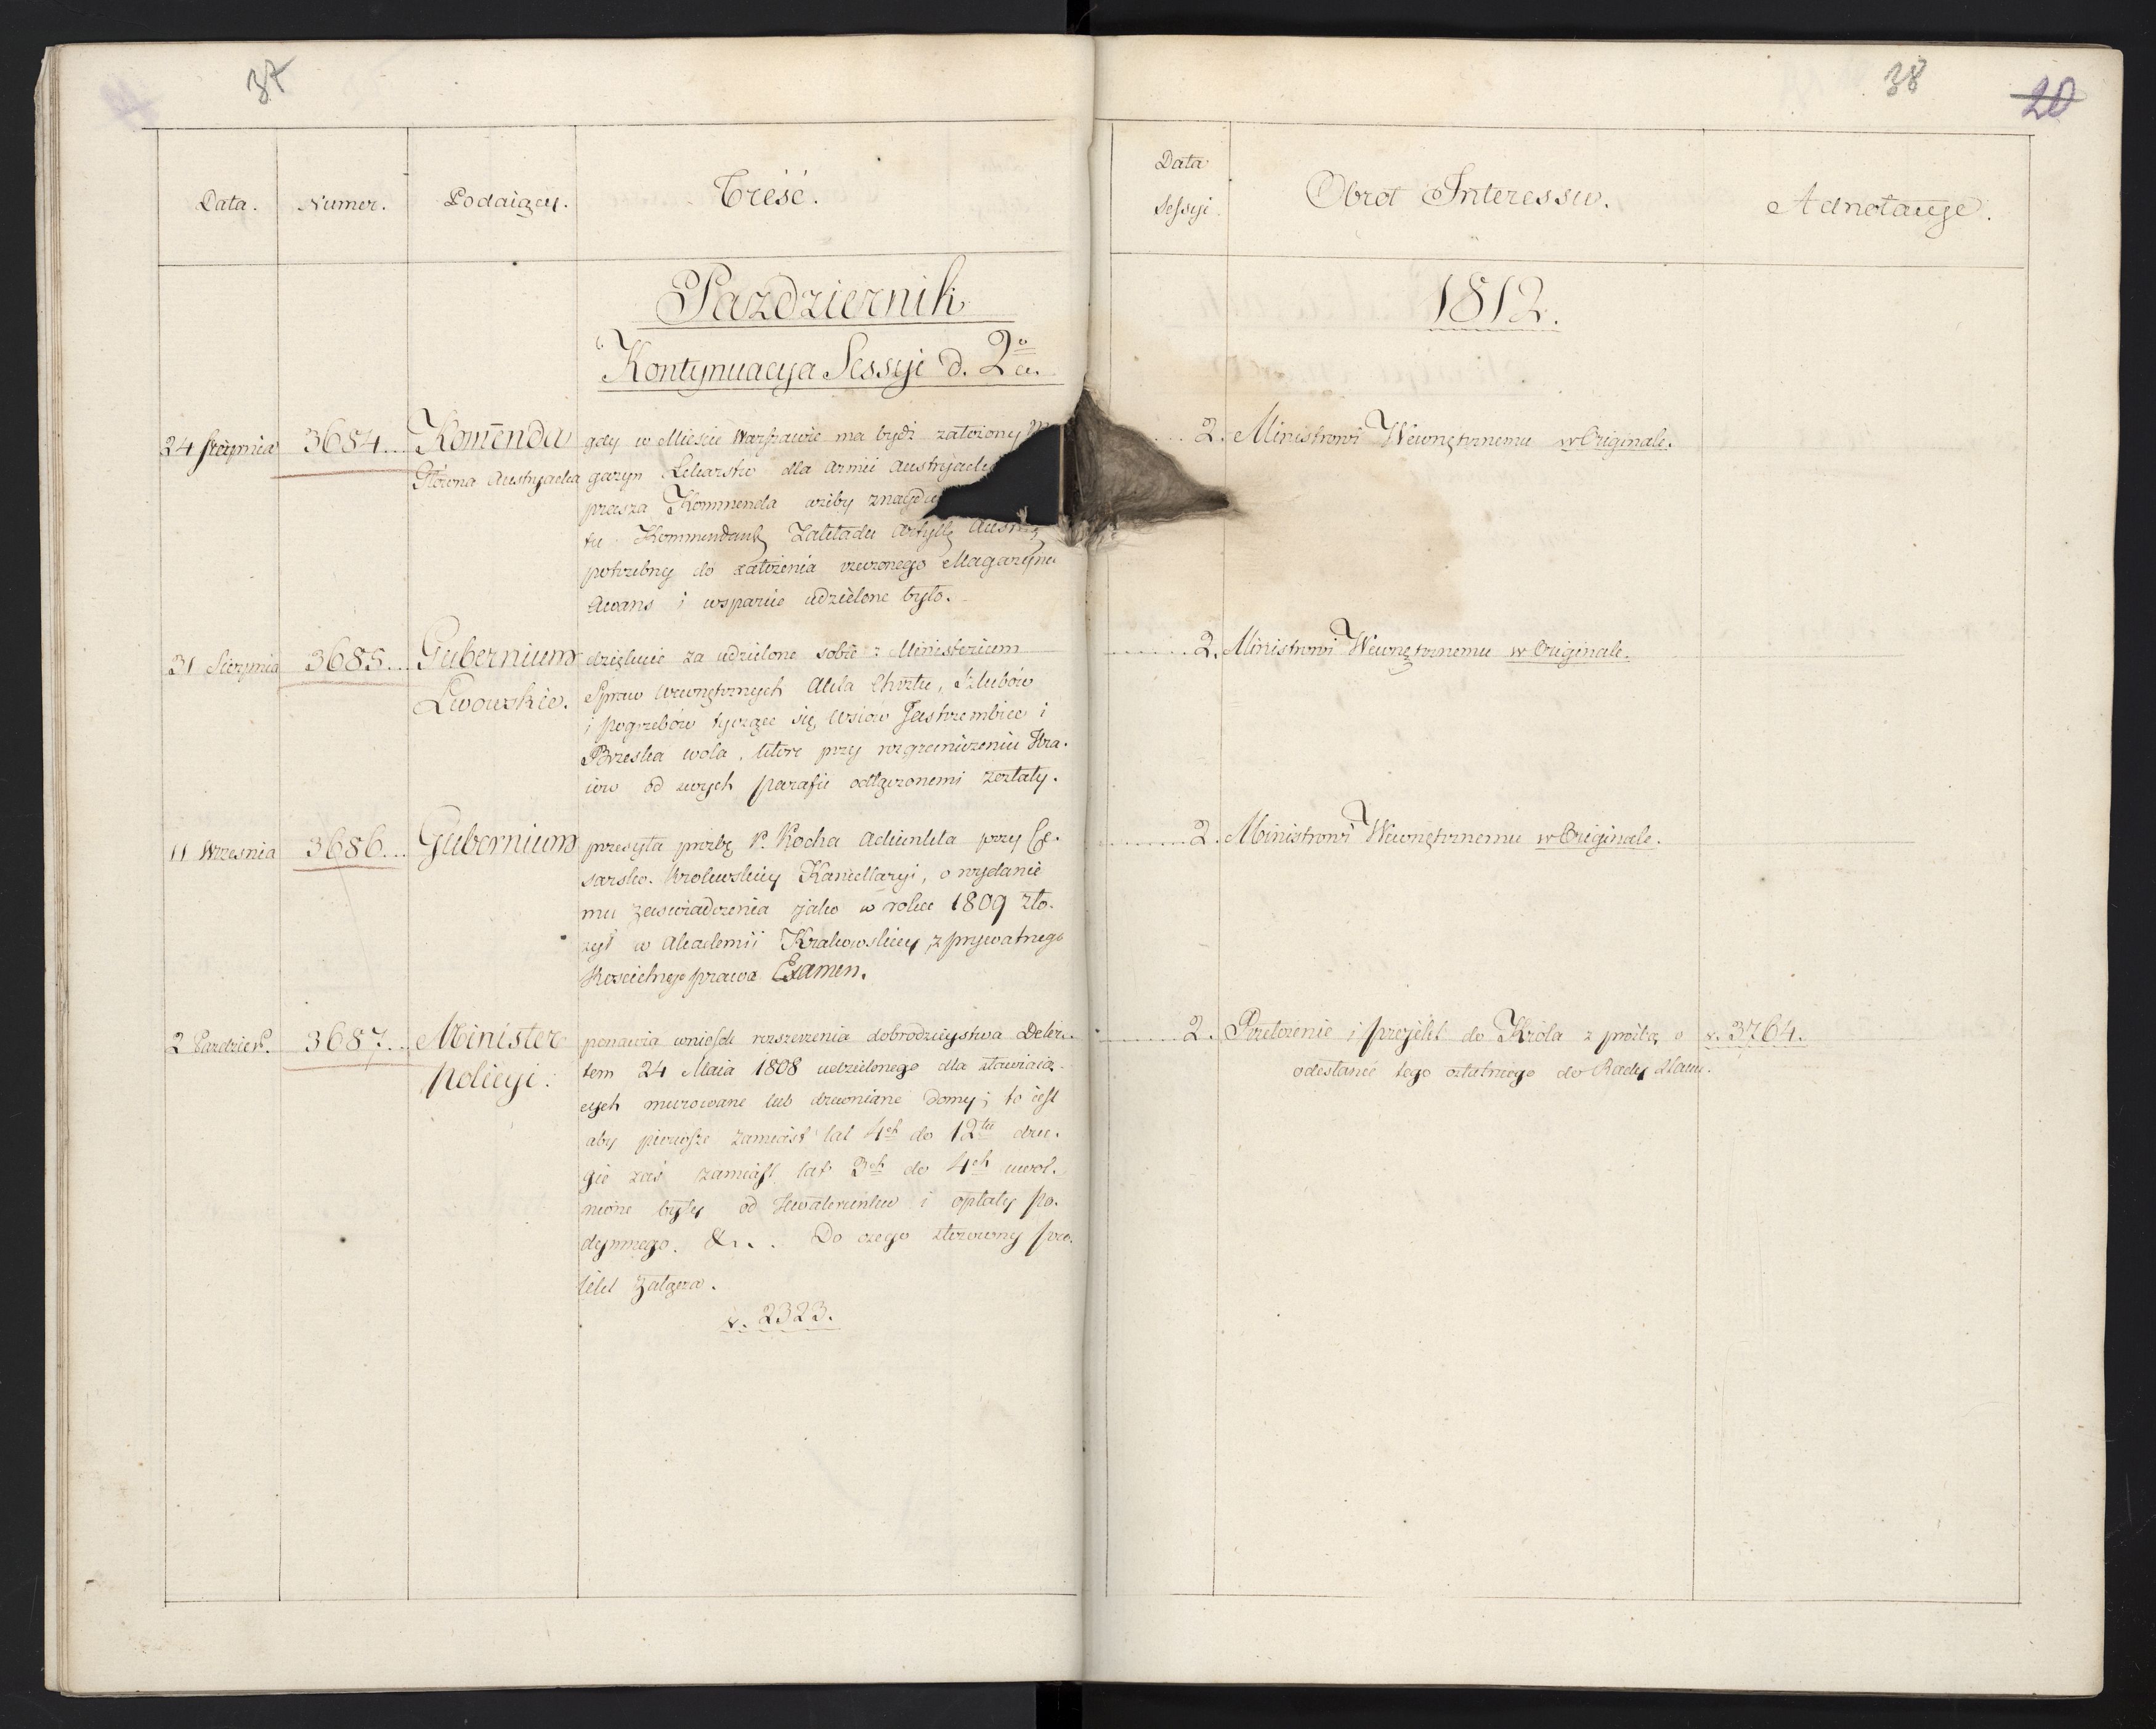 37
38
20
Data.
Numer.
Podaiący.
Treść.
Data
Sessyi.
Obrot Interessu.
Adnotacye.
Pazdziernik
1812.
Kontynuacya Sessyi d. 2o ca.
24 Sierpnia 3684... Komenda gdy w Mieście Warszawie ma bydź założony M
Główna Austryacka gazyn Lekarstw dla Armii Austryack
prasza Kommenda ażeby znayd
tu Kommendant Zakładu Artylle Austr
potrzebny do założenia rzeczonego Magazynu
Awans i wsparcie udzielone było.
2. Ministrowi Wewnętrznemu w Originale.
31 Sierpnia 3685... Gubernium dziękuie za udzielone sobie z Ministerium
Lwowskie. Spraw Wewnętrznych Akta Chrztu, Szlubów
i pogrzebów tyczące się wsiów Jastrzembica i
Brzeska wola, które przy rozgraniczeniu Kra-
iów od swych parafii odłączonemi zostały.
2. Ministrowi Wewnętrznemu w Originale.
11 Wrzesnia 3686... Gubernium przesyła proźbę P. Rocha Adiunkta przy Ce-
sarsko-Krolewskiey Kancellaryi, o wydanie
mu zaswiadczenia jako w roku 1809 zło-
żył w Akademii Krakowskiey z prywatnego
Kościelnego prawa Examen.
2. Ministrowi Wewnętrznemu w Originale.
2 Pazdzier. 3687... Minister ponawia wniosek rozszerzenia dobrodzieystwa Dekre-
Policyi. tem 24 Maia 1808 udzielonego dla stawiaią-
cych murowane lub drewniane Domy; to iest
aby pierwsze zamiast lat 4ch do 12tu dru-
gie zaś zamiast lat 3ch do 4ch uwol-
nione były od Kwaterunku i opłaty Po-
dymnego. &... Do czego stosowny pro-
iekt załącza.
v. 2323.
2. Przełożenie i projekt do Króla z proźbą o
odesłanie tego ostatniego do Rady Stanu.
v. 3764.